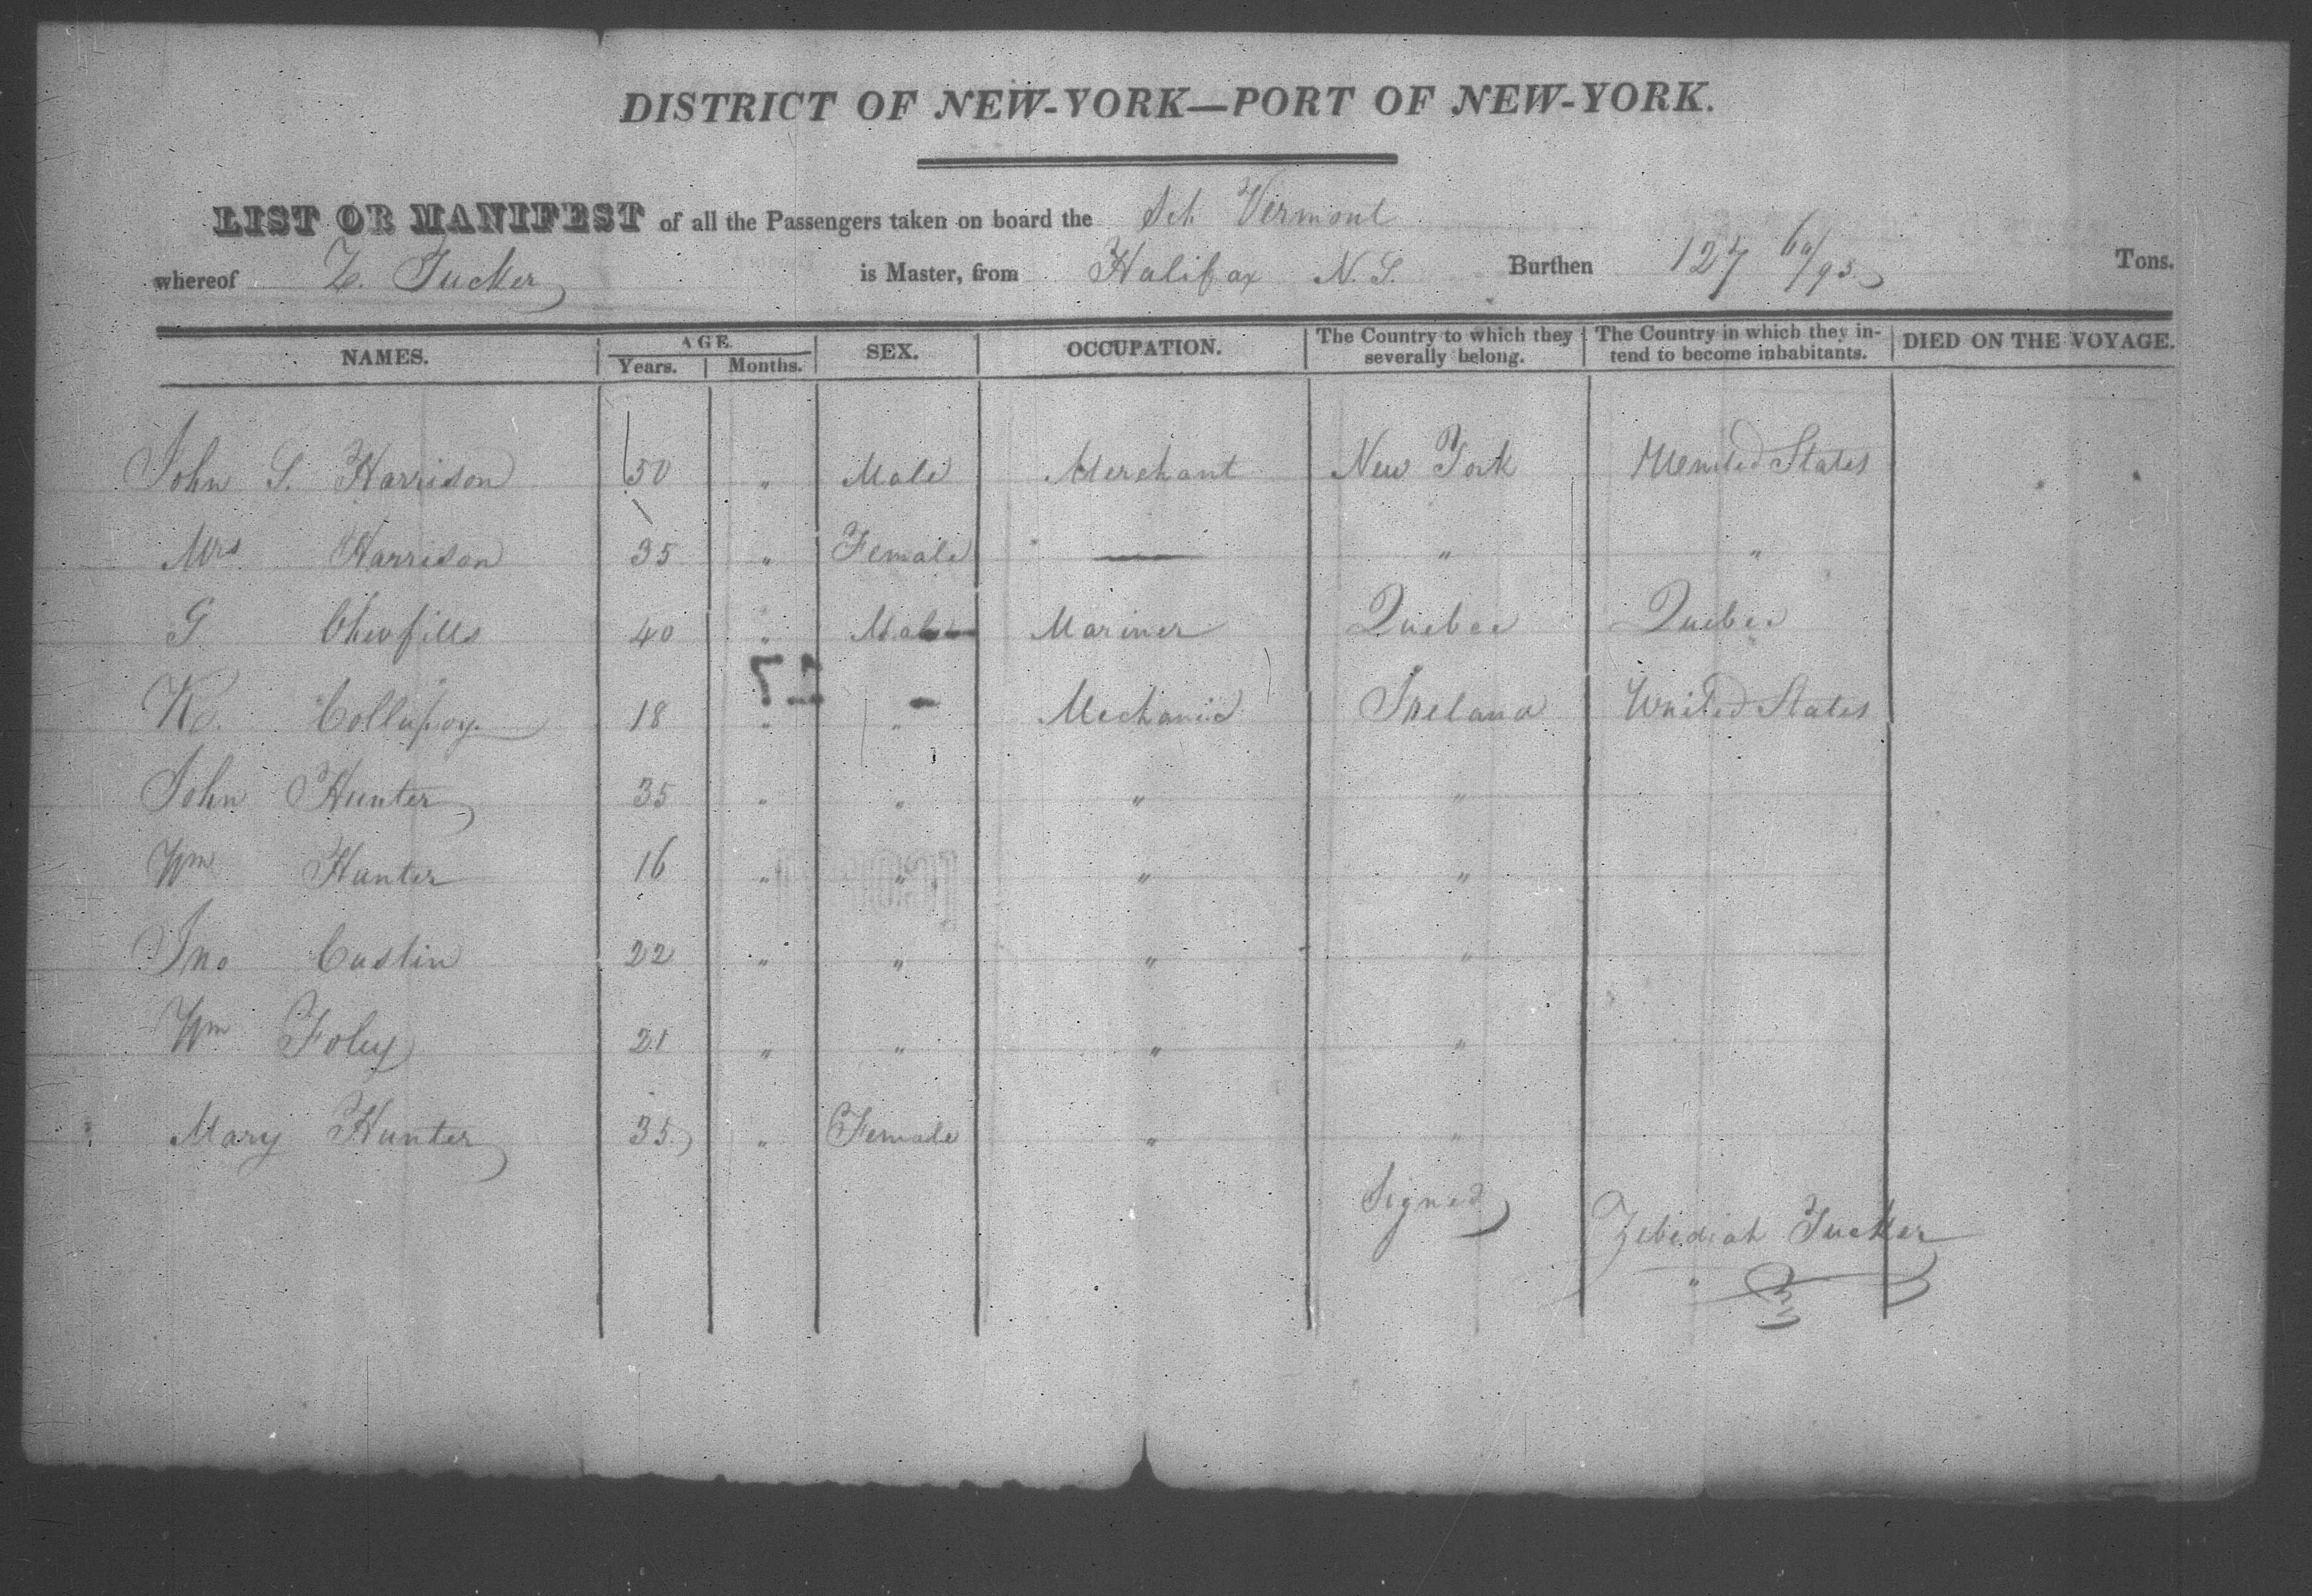 DISTRICT OF NEW-YORK—PORT OF NEW-YORK.
LIST OR MANIFEST of all the Passengers taken on board the Sch Vermont
whereof Z. Tucker is Master, from Halifax N.S. Burthen 127 60/95 Tons.
NAMES. AGE. Years. Months. SEX. OCCUPATION. The Country to which they severally belong. The Country in which they intend to become inhabitants. DIED ON THE VOYAGE.
John S. Harrison 50 " Male Merchant New York United States
Mrs Harrison 35 " Female — " "
G 40 " Male Mariner Quebec Quebec
K. 18 " " Mechanic Ireland United States
John Hunter 35 " " " "
Wm Hunter 16 " " " "
Jno Custin 22 " " " "
Wm Foley 21 " " " "
Mary Hunter 35 " Female " "
Signed Zebediah Tucker